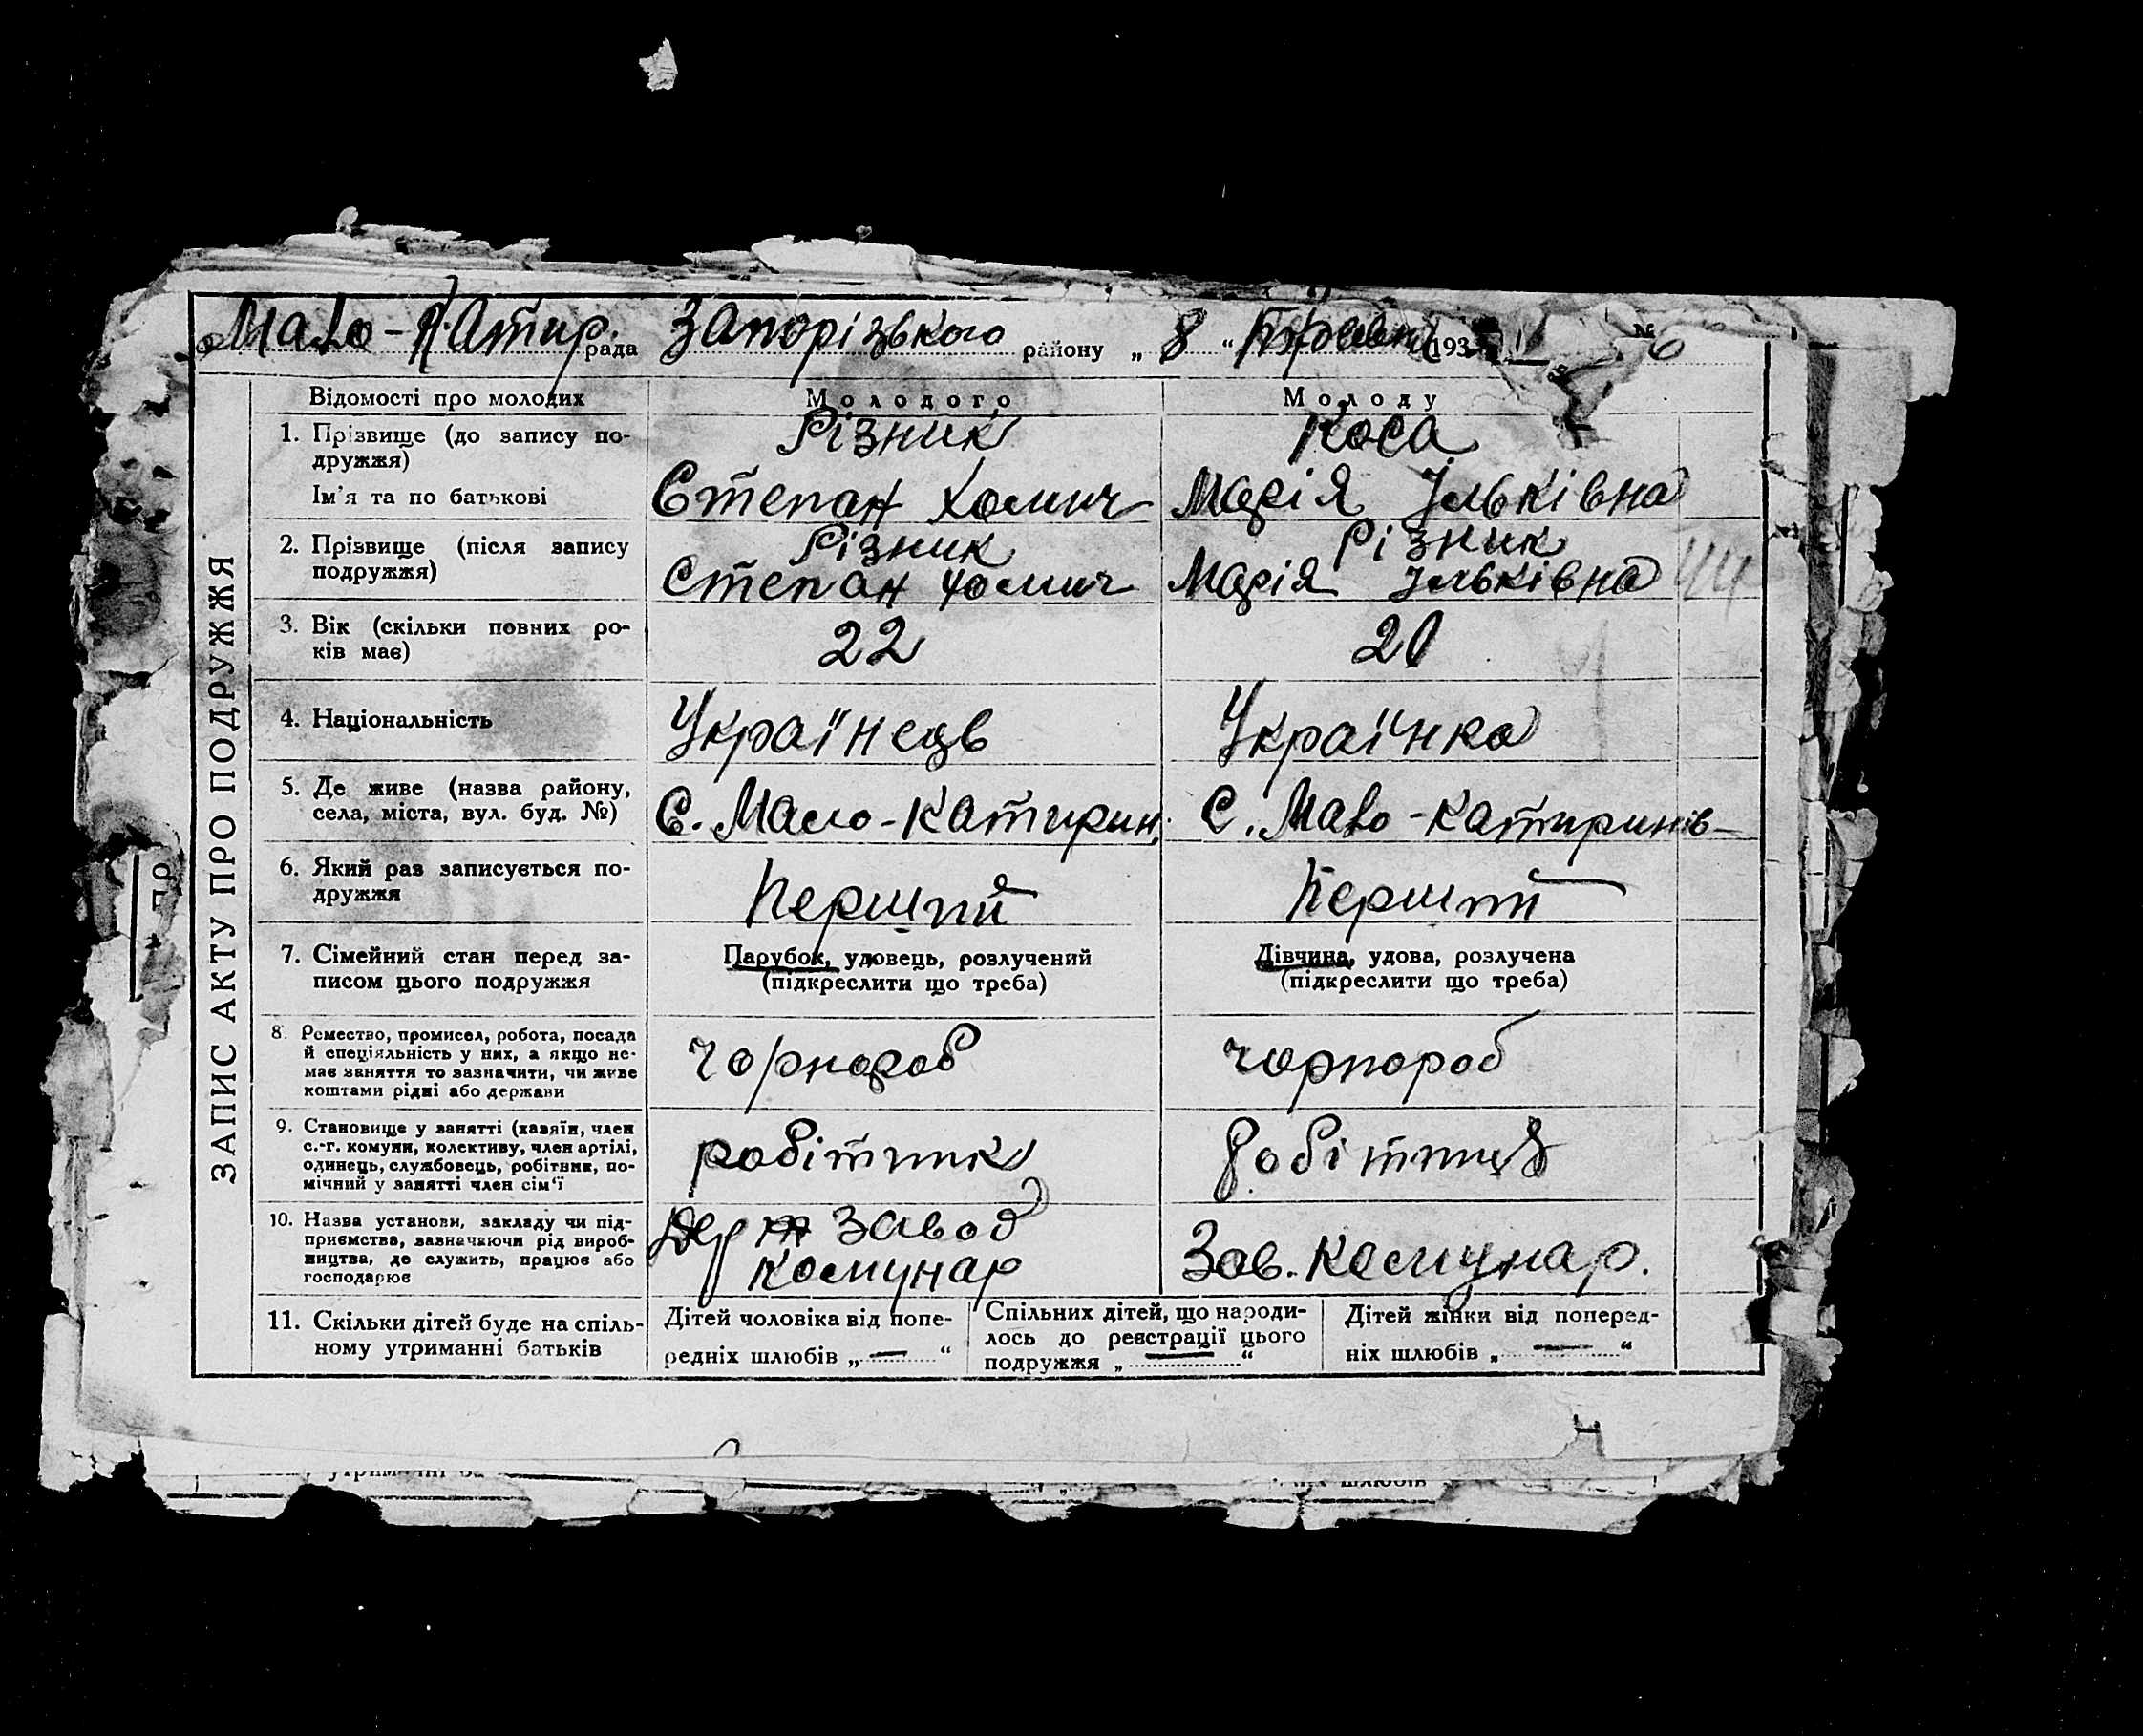 Мало-Катир. рада Запорізького району „ 8 “ 193 № 6
ЗАПИС АКТУ ПРО ПОДРУЖЖЯ
Відомості про молодих Молодого Молоду
1. Прізвище (до запису по- Різник Коса
дружжя)
Ім'я та по батькові Степан Хомич Марія Ільківна
2. Прізвище (після запису Різник Різник
подружжя) Степан Хомич Марія Ільківна 44
3. Вік (скільки повних ро- 22 20
ків має)
4. Національність Українець Українка
5. Де живе (назва району,
села, міста, вул. буд. №) С. Мало-Катирин. С. Мало-Катиринів-
6. Який раз записується по- Перший Перший
дружжя
7. Сімейний стан перед за- Парубок, удовець, розлучений Дівчина, удова, розлучена
писом цього подружжя (підкреслити що треба) (підкреслити що треба)
8. Ремество, промисел, робота, посада
й спеціяльність у них, а якщо не- чорнороб чорнороб
має заняття то зазначити, чи живе
коштами рідні або держави
9. Становище у занятті (хазяїн, член
с.-г. комуни, колективу, член артілі, робітник робітниця
одинець, службовець, робітник, по-
мічний у занятті член сім'ї
10. Назва установи, закладу чи під- Держ завод
приємства, зазначаючи рід вироб- Комунар Зав. Комунар.
ництва, де служить, працює або
господарює
11. Скільки дітей буде на спіль- Дітей чоловіка від попе- Спільних дітей, що народи- Дітей жінки від поперед-
ному утриманні батьків редніх шлюбів „ — “ лось до реєстрації цього ніх шлюбів „ — “
подружжя „ — “
шлюбів